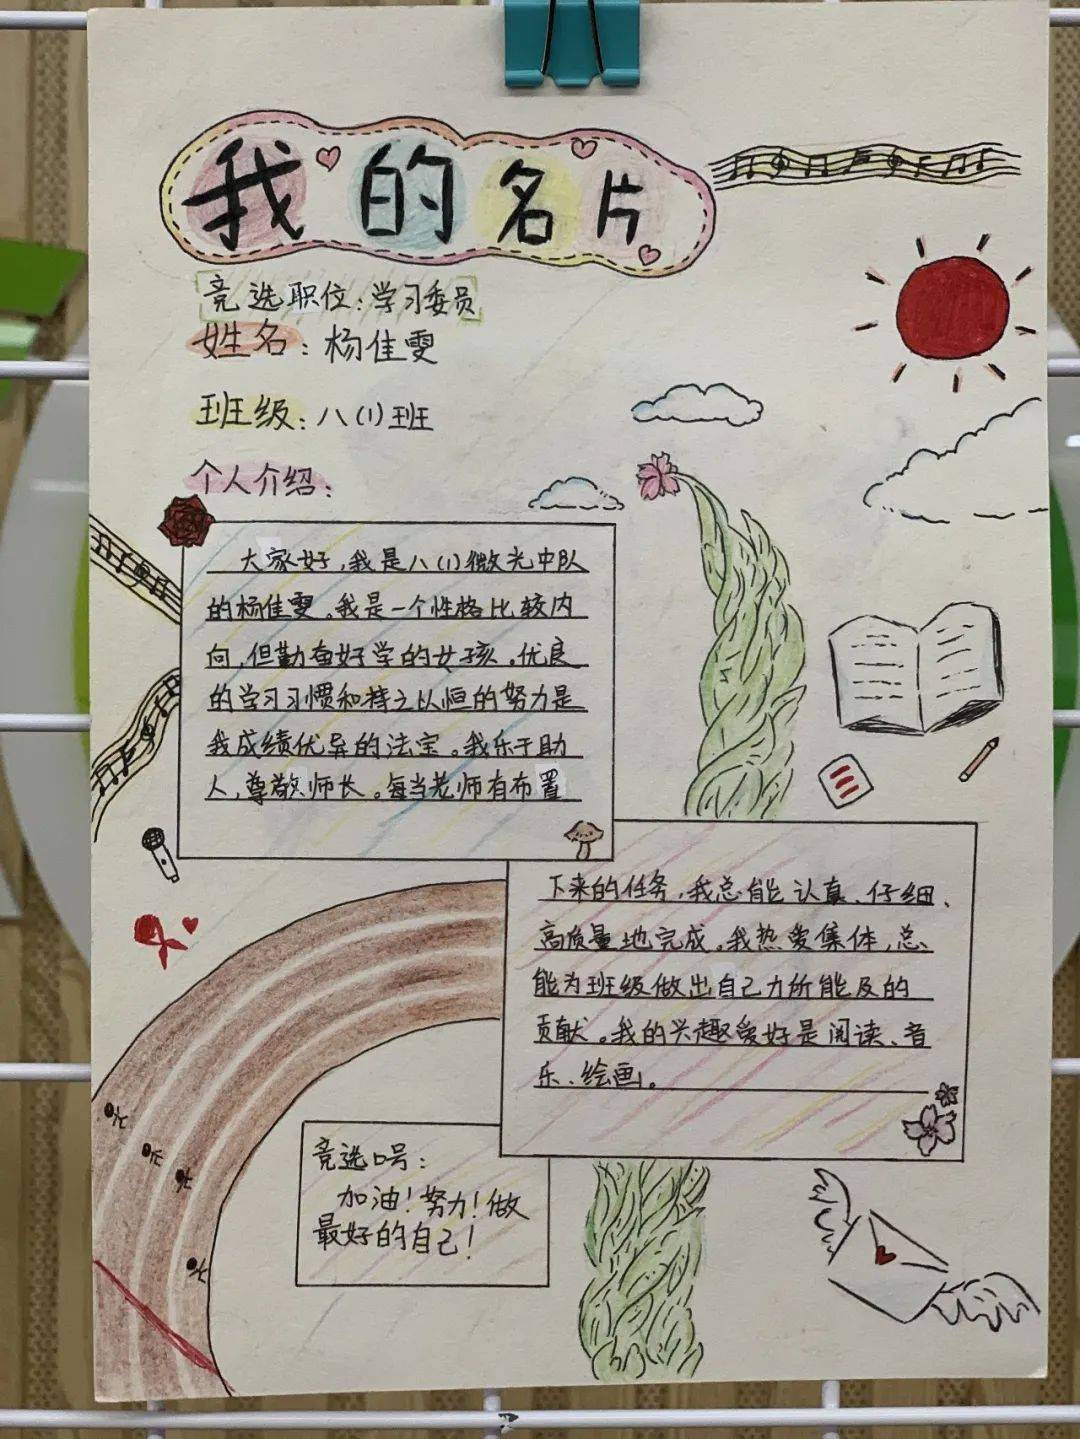 我的名片
竞选职位：学习委员
姓名：杨佳雯
班级：八(1)班
个人介绍：
大家好，我是八(1)微光中队
的杨佳雯。我是一个性格比较内
向，但勤奋好学的女孩。优良
的学习习惯和持之以恒的努力是
我成绩优异的法宝。我乐于助
人，尊敬师长。每当老师有布置
下来的任务，我总能认真、仔细、
高质量地完成。我热爱集体，总
能为班级做出自己力所能及的
贡献。我的兴趣爱好是阅读、音
乐、绘画。
竞选口号：
加油！努力！做
最好的自己！